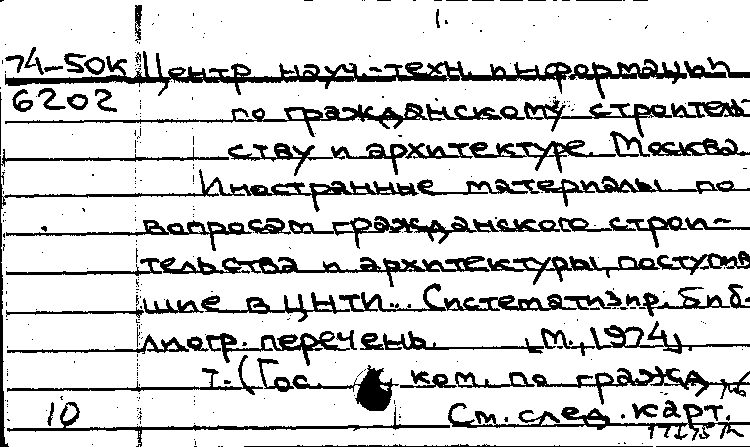 1.
74-50к Центр науч.-техн. информации
6202 по гражданскому строитель
ству и архитектуре. Москва.
Иностранные материалы по
вопросам гражданского строи-
тельства и архитектуры, поступив
шие в ЦНТИ... Систематизир. библ-
лиогр. перечень. [М., 1974].
т.-(Гос. ком. по гражд
10 См. след. карт.